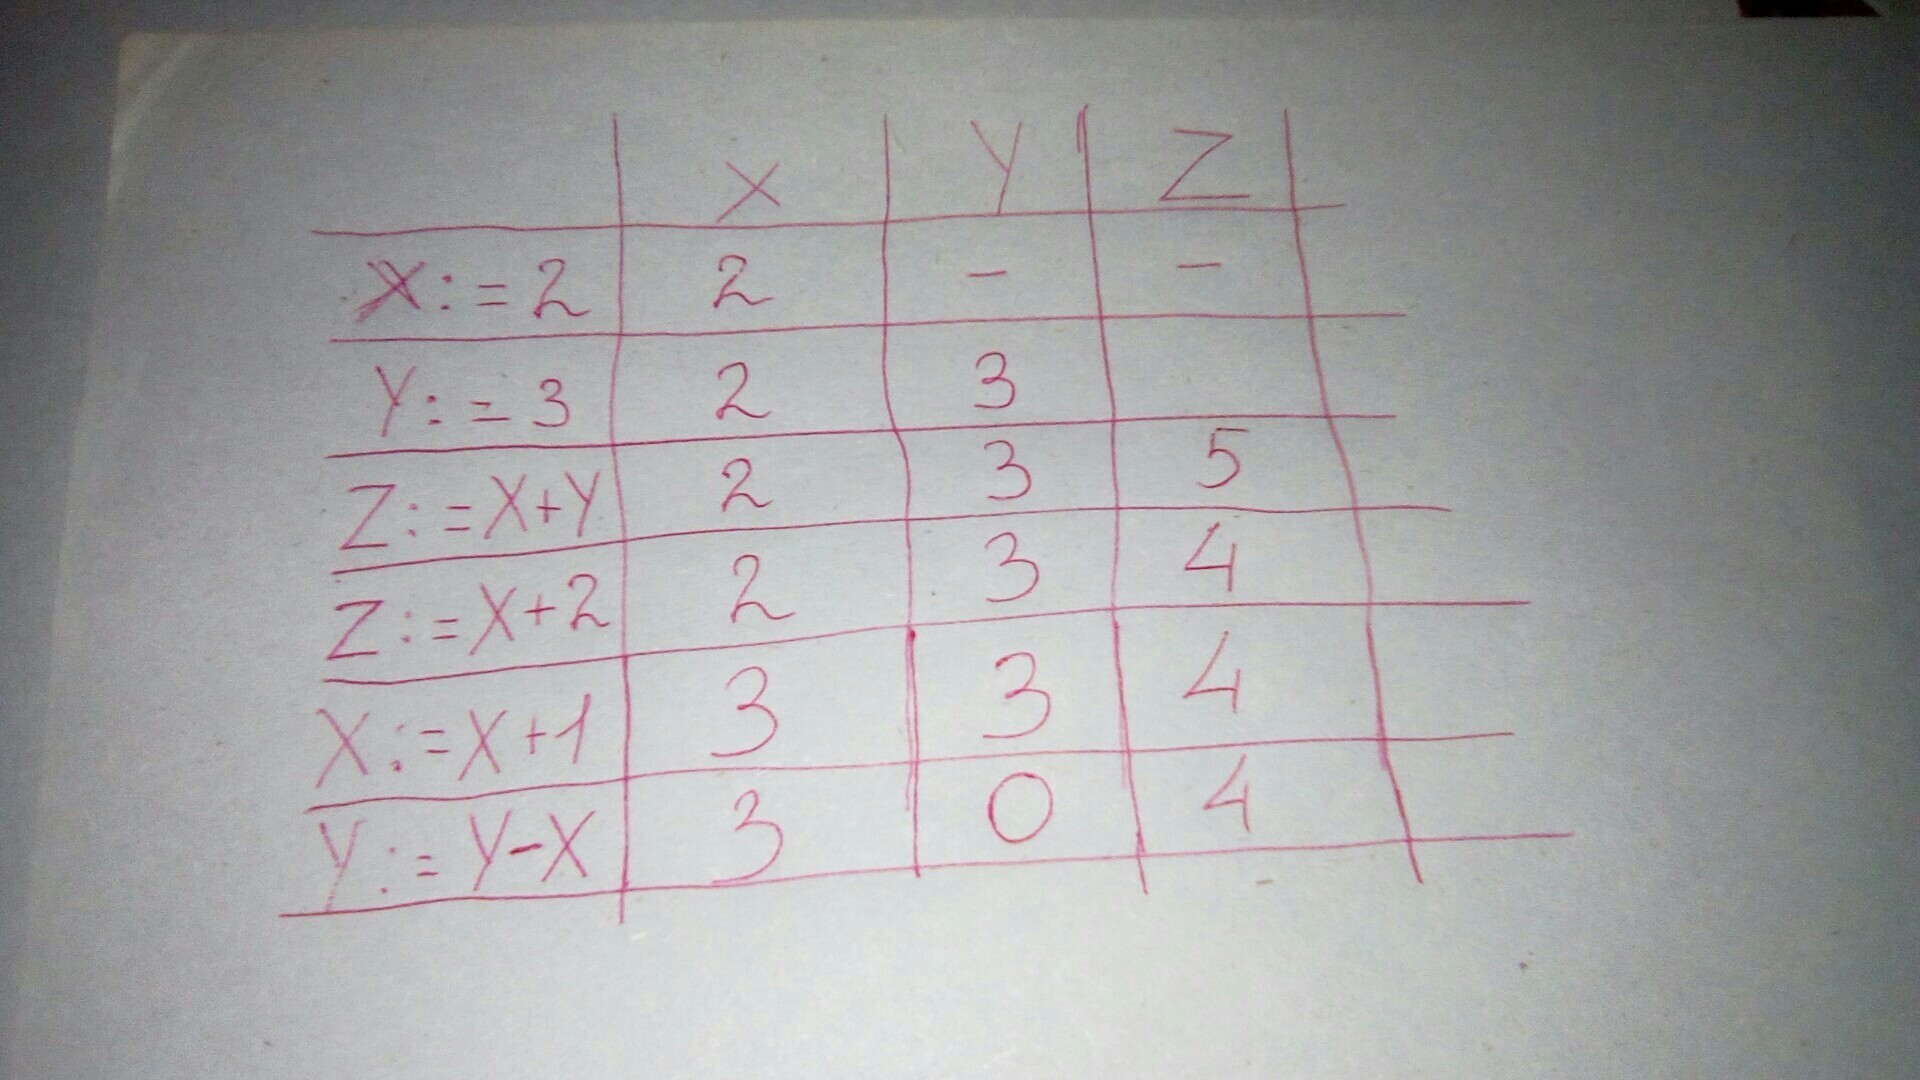 X Y Z
X:=2 2 - -
Y:=3 2 3
Z:=X+Y 2 3 5
Z:=X+2 2 3 4
X:=X+1 3 3 4
Y:=Y-X 3 0 4